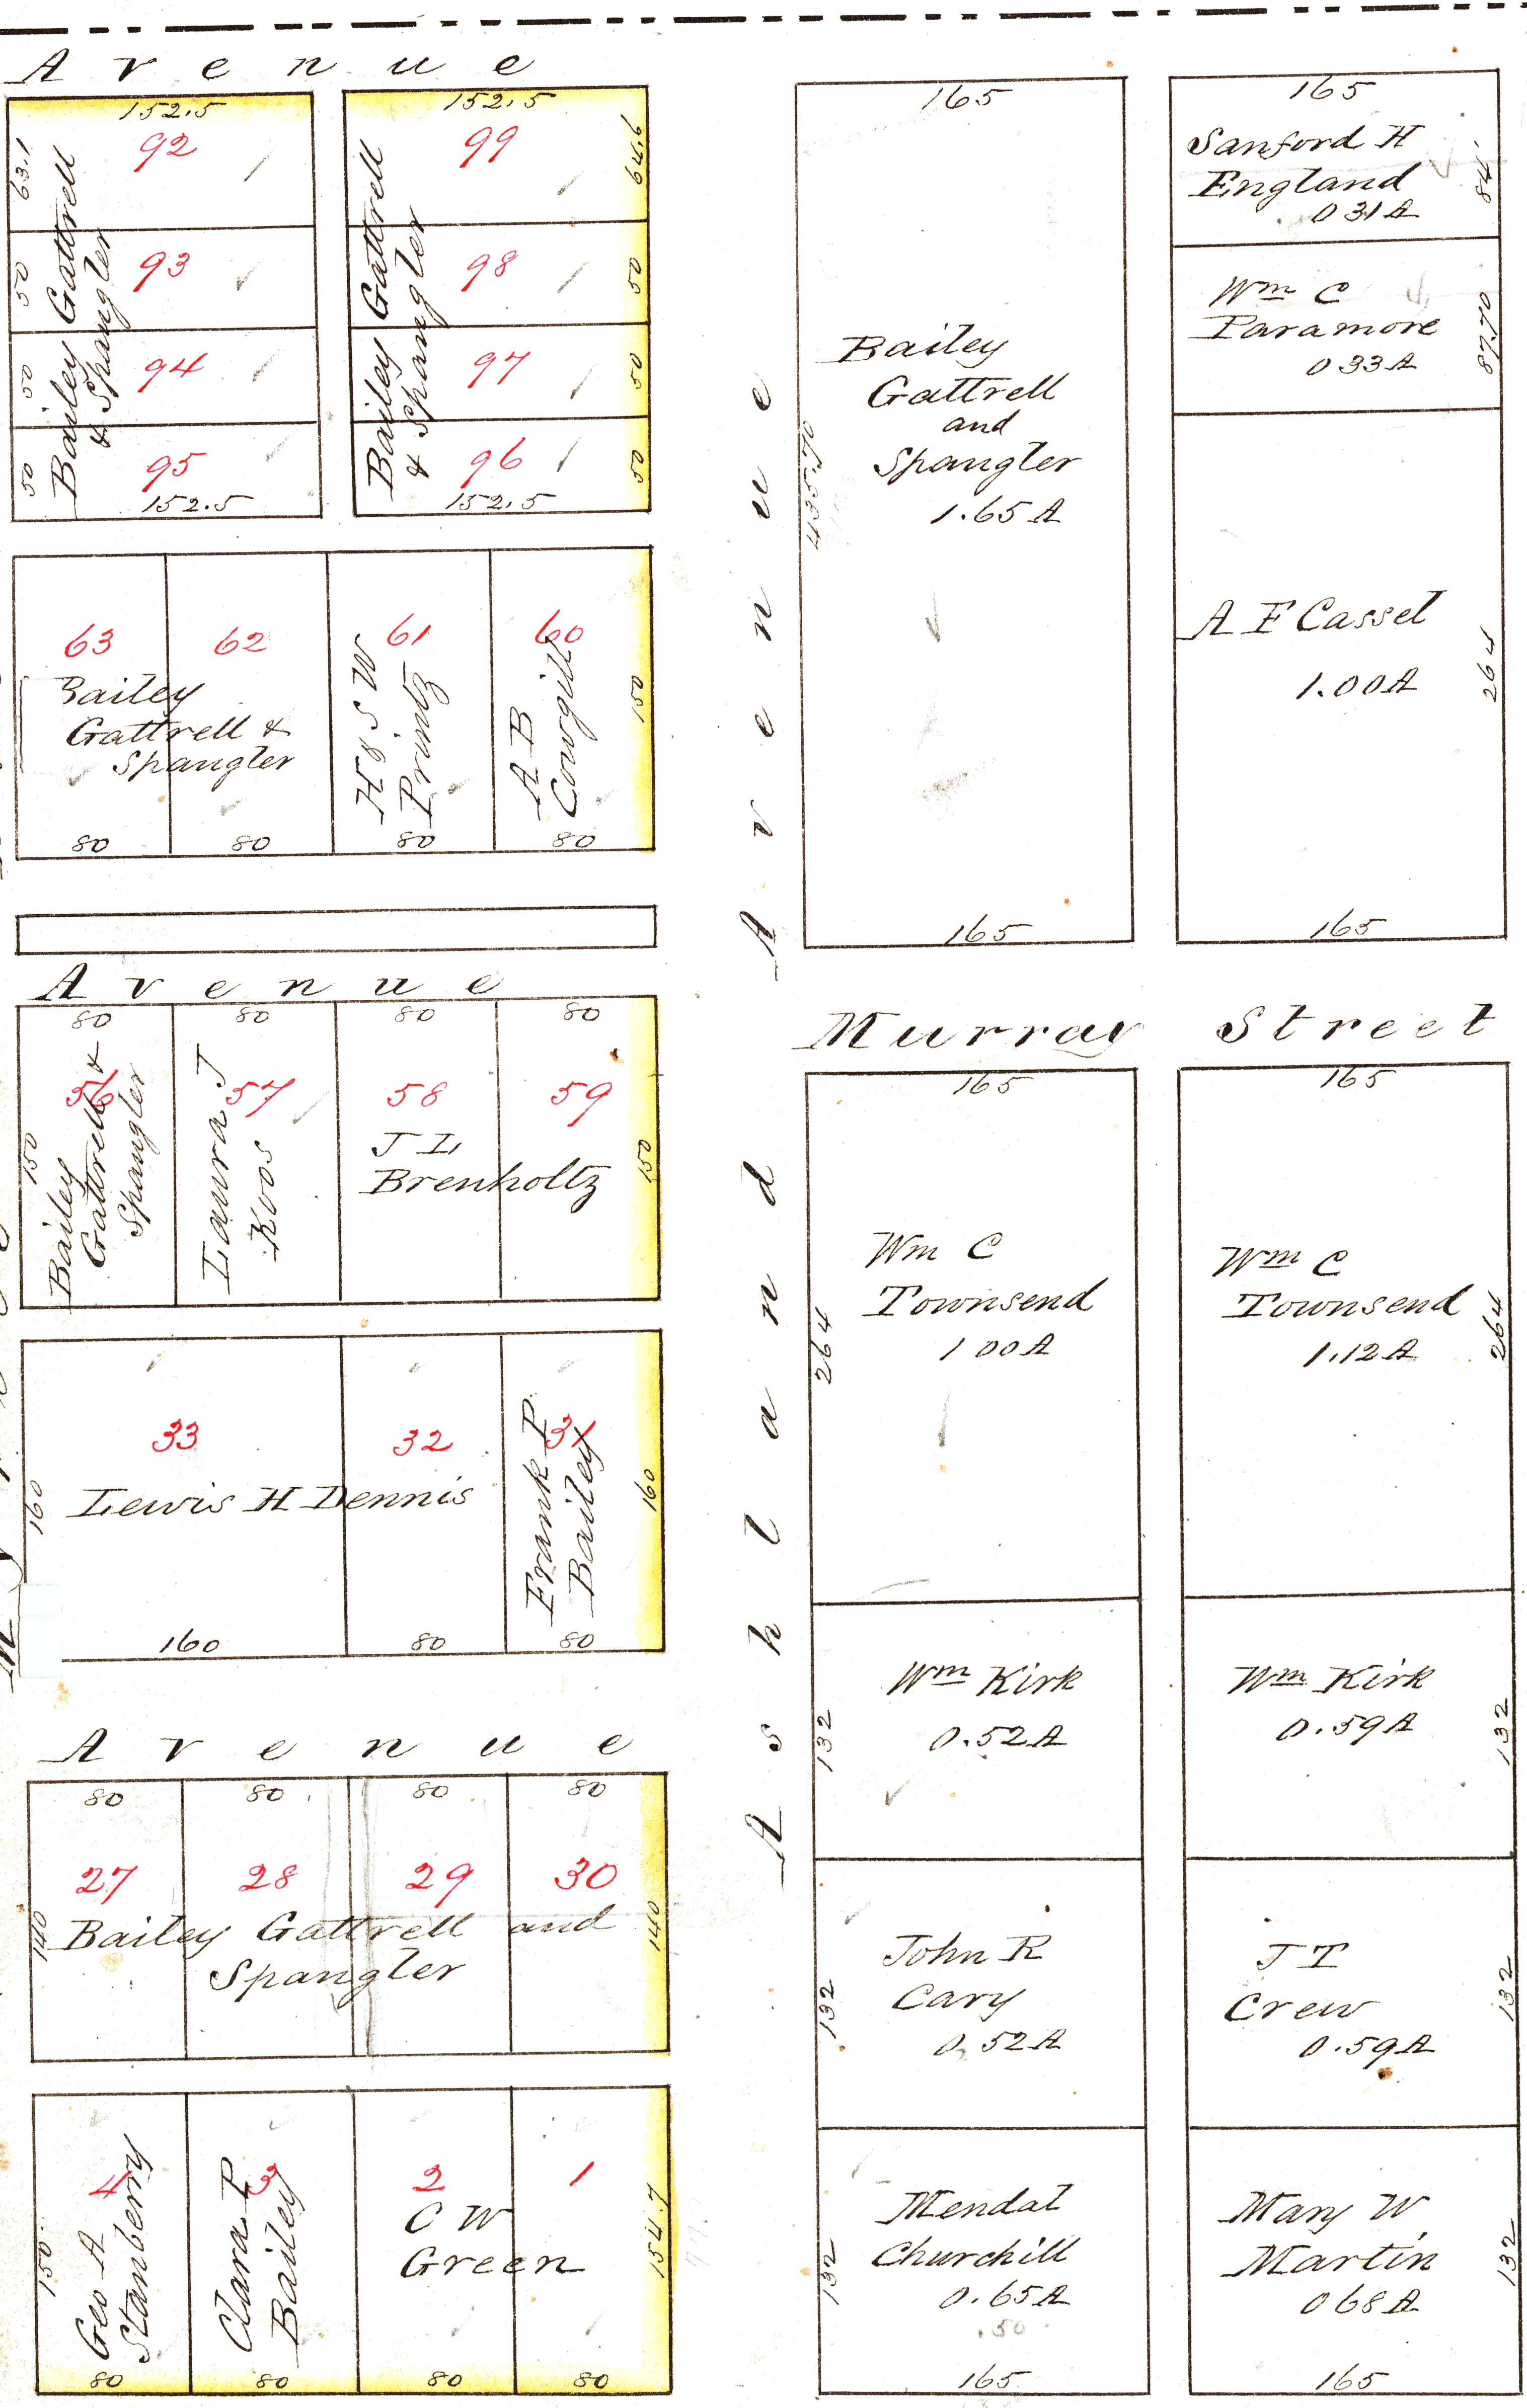 Avenue
152.5
92
63.1
93
50
94
50
95
50
152.5
Bailey Gattrell
& Spangler
152.5
99
64.6
98
50
97
50
96
50
152.5
Bailey Gattrell
& Spangler
63
62
61
60
Bailey
Gattrell &
Spangler
H & S W
Printz
A B
Cowgill
150
80
80
80
80
Avenue
80
80
80
80
56
57
58
59
150
Bailey
Gattrell &
Spangler
Laura J
Koos
J L
Brenholtz
150
33
32
31
160
Lewis H Dennis
Frank P
Bailey
160
160
80
80
Avenue
80
80
80
80
27
28
29
30
140
Bailey Gattrell and
Spangler
140
4
3
2
1
150
Geo A
Stanberry
Clara P
Bailey
C W
Green
154.7
80
80
80
80
Ashland Avenue
165
Bailey
Gattrell
and
Spangler
1.65 A
435.70
165
165
Sanford H
England
0 31 A
84
Wm C
Paramore
0 33 A
87.70
A F Cassel
1.00 A
264
165
Murray Street
165
Wm C
Townsend
1 00 A
264
Wm Kirk
0.52 A
132
John R
Cary
0.52 A
132
Mendal
Churchill
0.65 A
.50
132
165
165
Wm C
Townsend
1.12 A
264
Wm Kirk
0.59 A
132
J T
Crew
0.59 A
132
Mary W
Martin
0 68 A
132
165